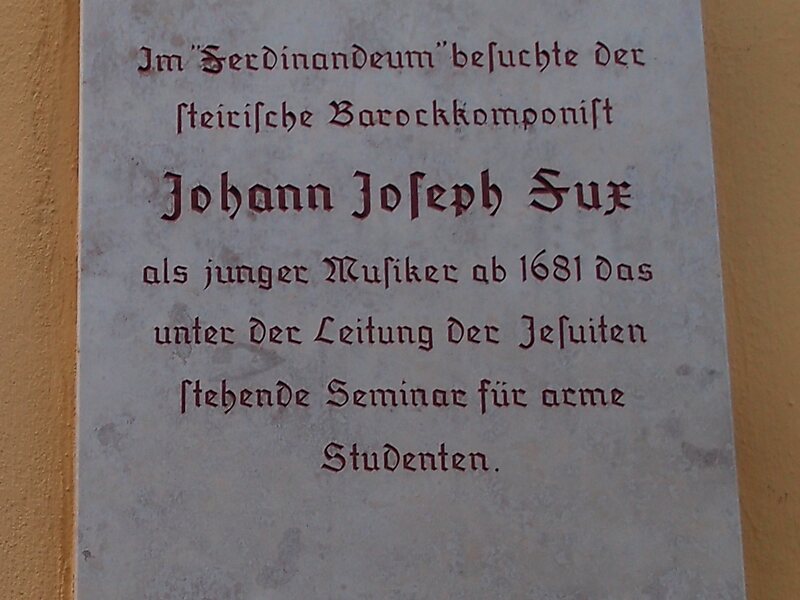 Im "Ferdinandeum" beſuchte der
ſteiriſche Barockkomponiſt
Johann Joſeph Fux
als junger Muſiker ab 1681 das
unter der Leitung der Jeſuiten
ſtehende Seminar für arme
Studenten.